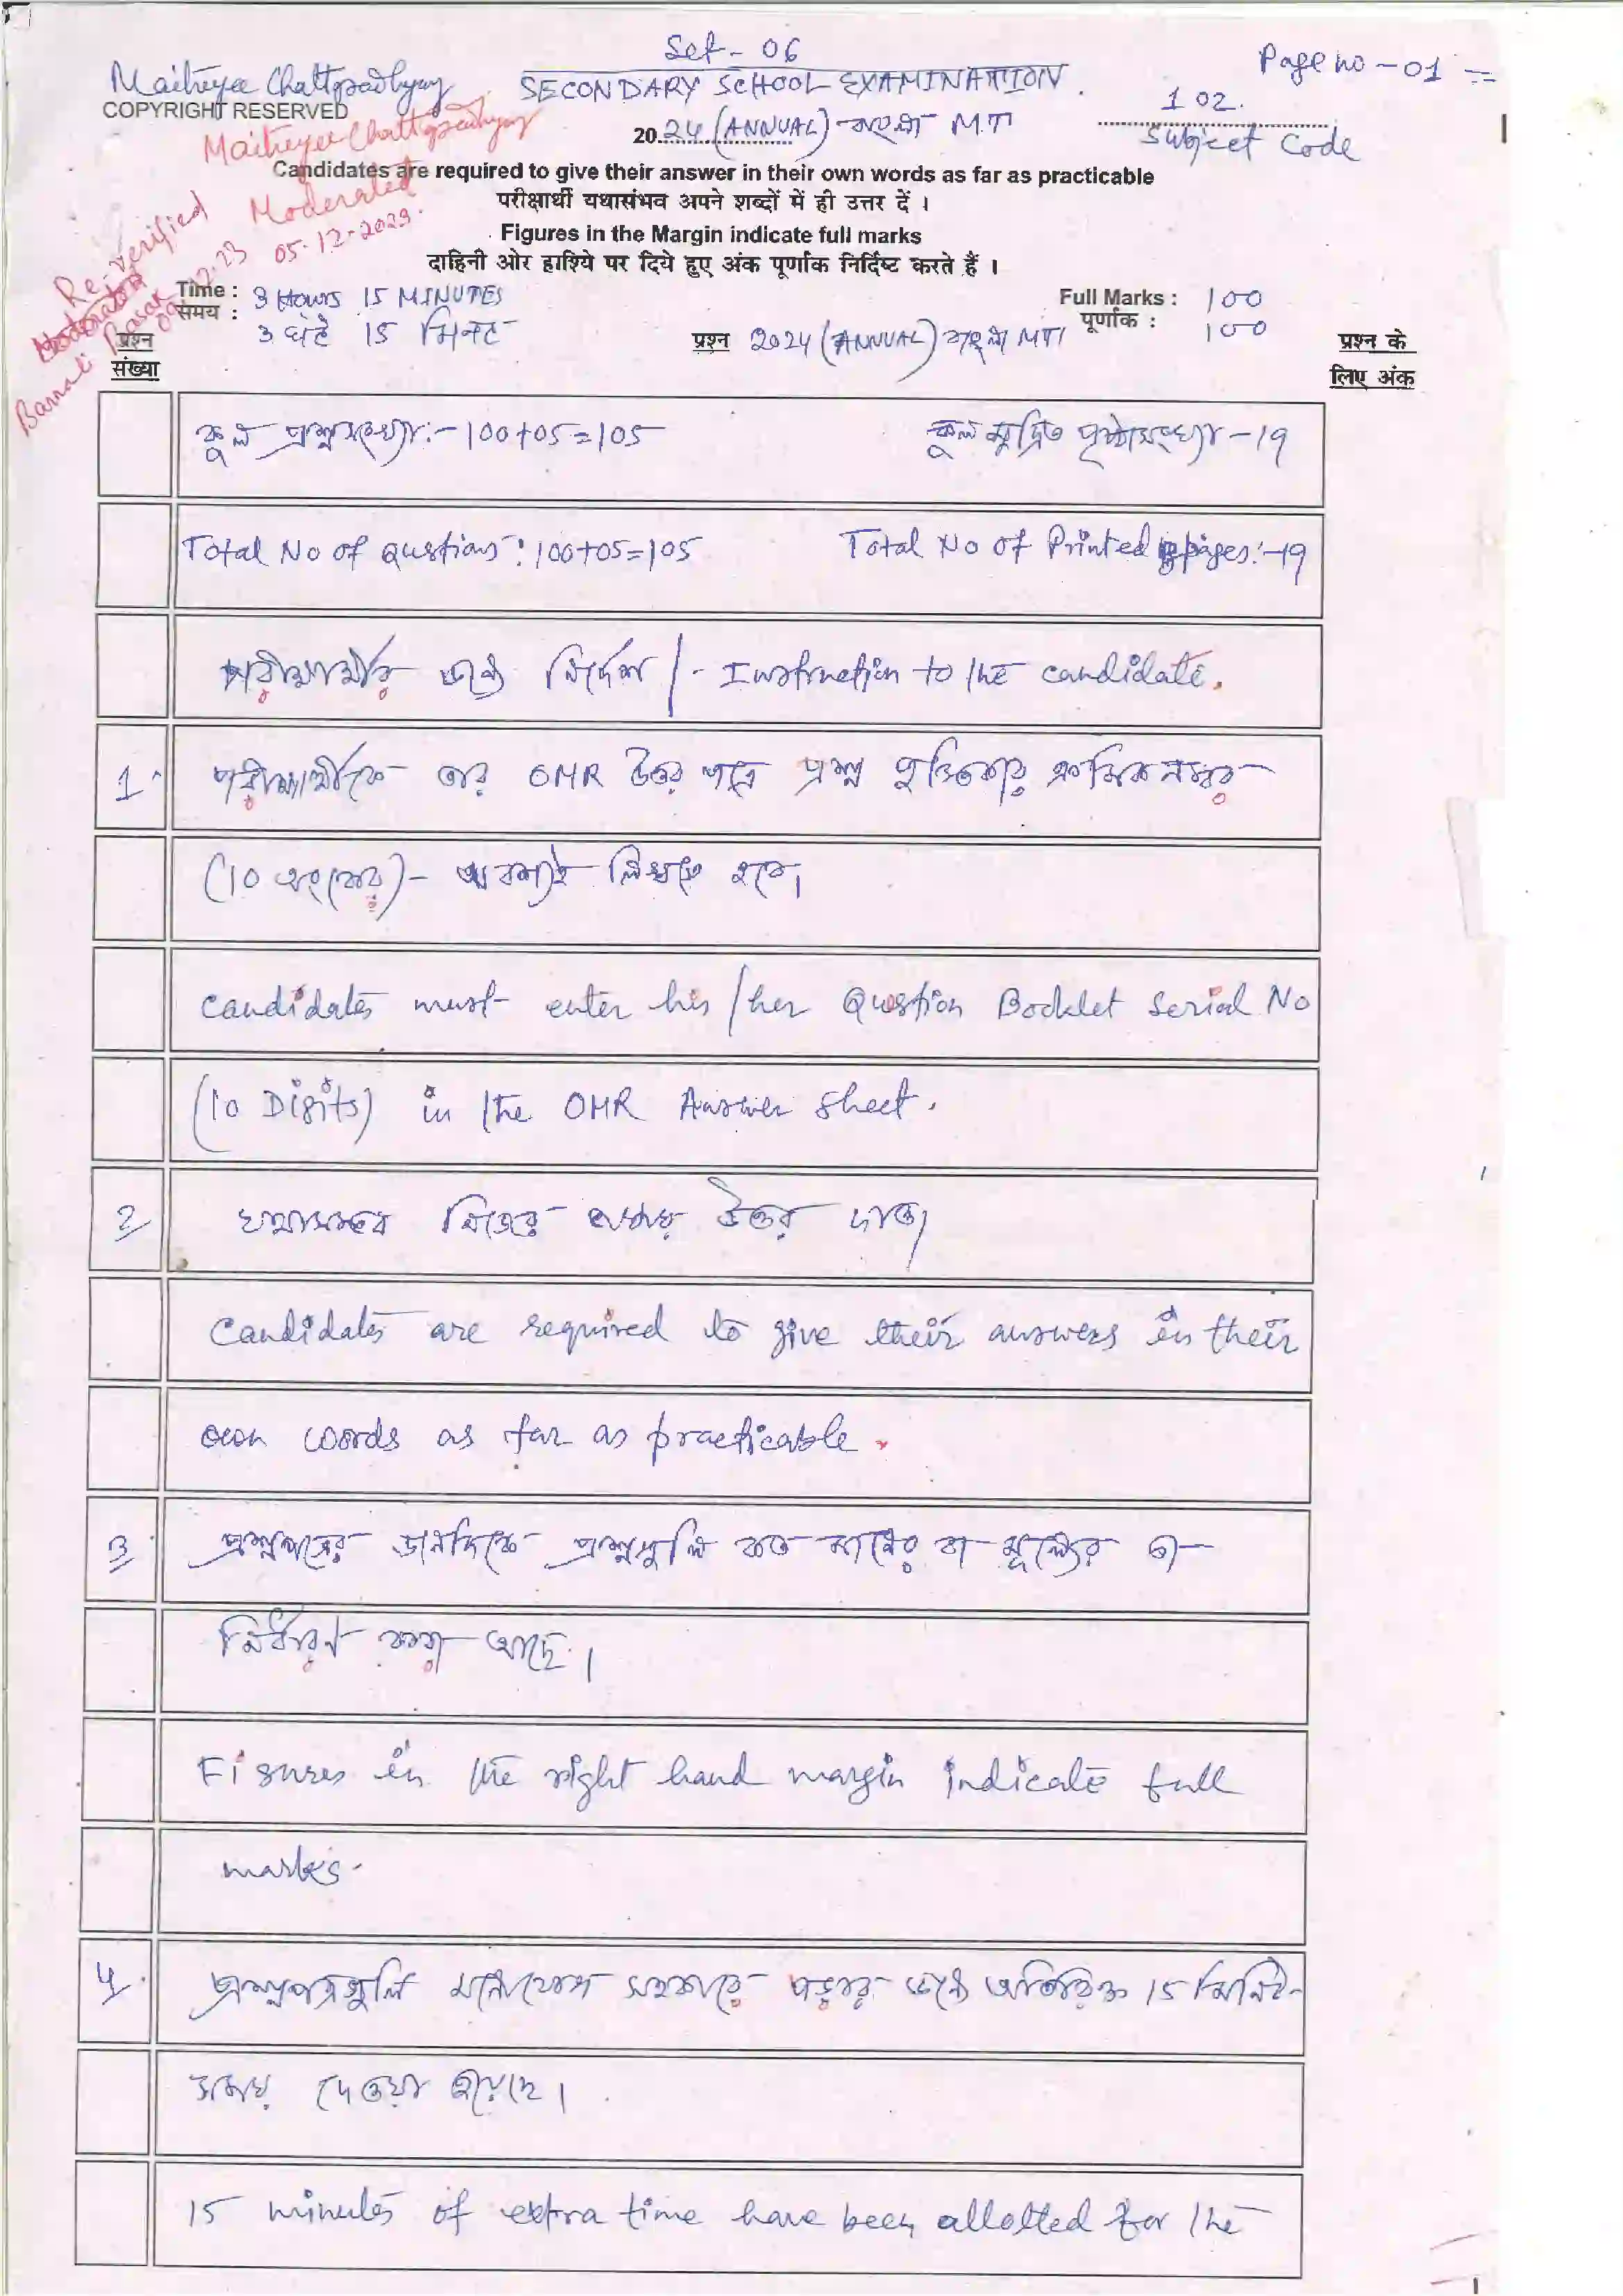 Set - 06
Page no - 01
Maitreyee Chattopadhyay
SECONDARY SCHOOL EXAMINATION.
102.
COPYRIGHT RESERVED
Maitreyee Chattopadhyay
2024 (ANNUAL) বাংলা M.T
Subject Code
Candidates are required to give their answer in their own words as far as practicable
Moderated
परीक्षार्थी यथासंभव अपने शब्दों में ही उत्तर दें ।
Re-verified
05-12-2023.
Figures in the Margin indicate full marks
दाहिनी ओर हाशिये पर दिये हुए अंक पूर्णांक निर्दिष्ट करते हैं ।
Barnali Basak
Time : 3 Hours 15 MINUTES
Full Marks : 100
समय : 3 घंटे 15 मिनट
पूर्णांक : 100
प्रश्न संख्या
प्रश्न 2024 (ANNUAL) বাংলা MT
प्रश्न के लिए अंक
কুল প্রশ্নসংখ্যা:- 100+05=105 কুল মুদ্রিত পৃষ্ঠাসংখ্যা - 19
Total No of Qustions : 100+05=105 Total No of Printed pages:-19
পরীক্ষার্থীর জন্য নির্দেশ / - Instruction to the candidate.
1. পরীক্ষার্থীকে তার OMR উত্তর পত্রে প্রশ্ন পুস্তিকার ক্রমিক নম্বর
(10 অংকের) - অবশ্যই লিখতে হবে।
candidates must enter his / her Question Booklet Serial No
(10 Digits) in the OMR Answer sheet.
2 যথাসম্ভব নিজের ভাষায় উত্তর দাও।
Candidates are required to give their answers in their
own words as far as practicable.
3 প্রশ্নপত্রের ডানদিকে প্রশ্নগুলি কত মানের বা মূল্যের তা
নির্ধারণ করা আছে।
Figures in the right hand margin indicate full
marks.
4. প্রশ্নপত্রগুলি মনোযোগ সহকারে পড়বার জন্যে অতিরিক্ত 15 মিনিট
সময় দেওয়া হয়েছে।
15 minutes of extra time have been allotted for the